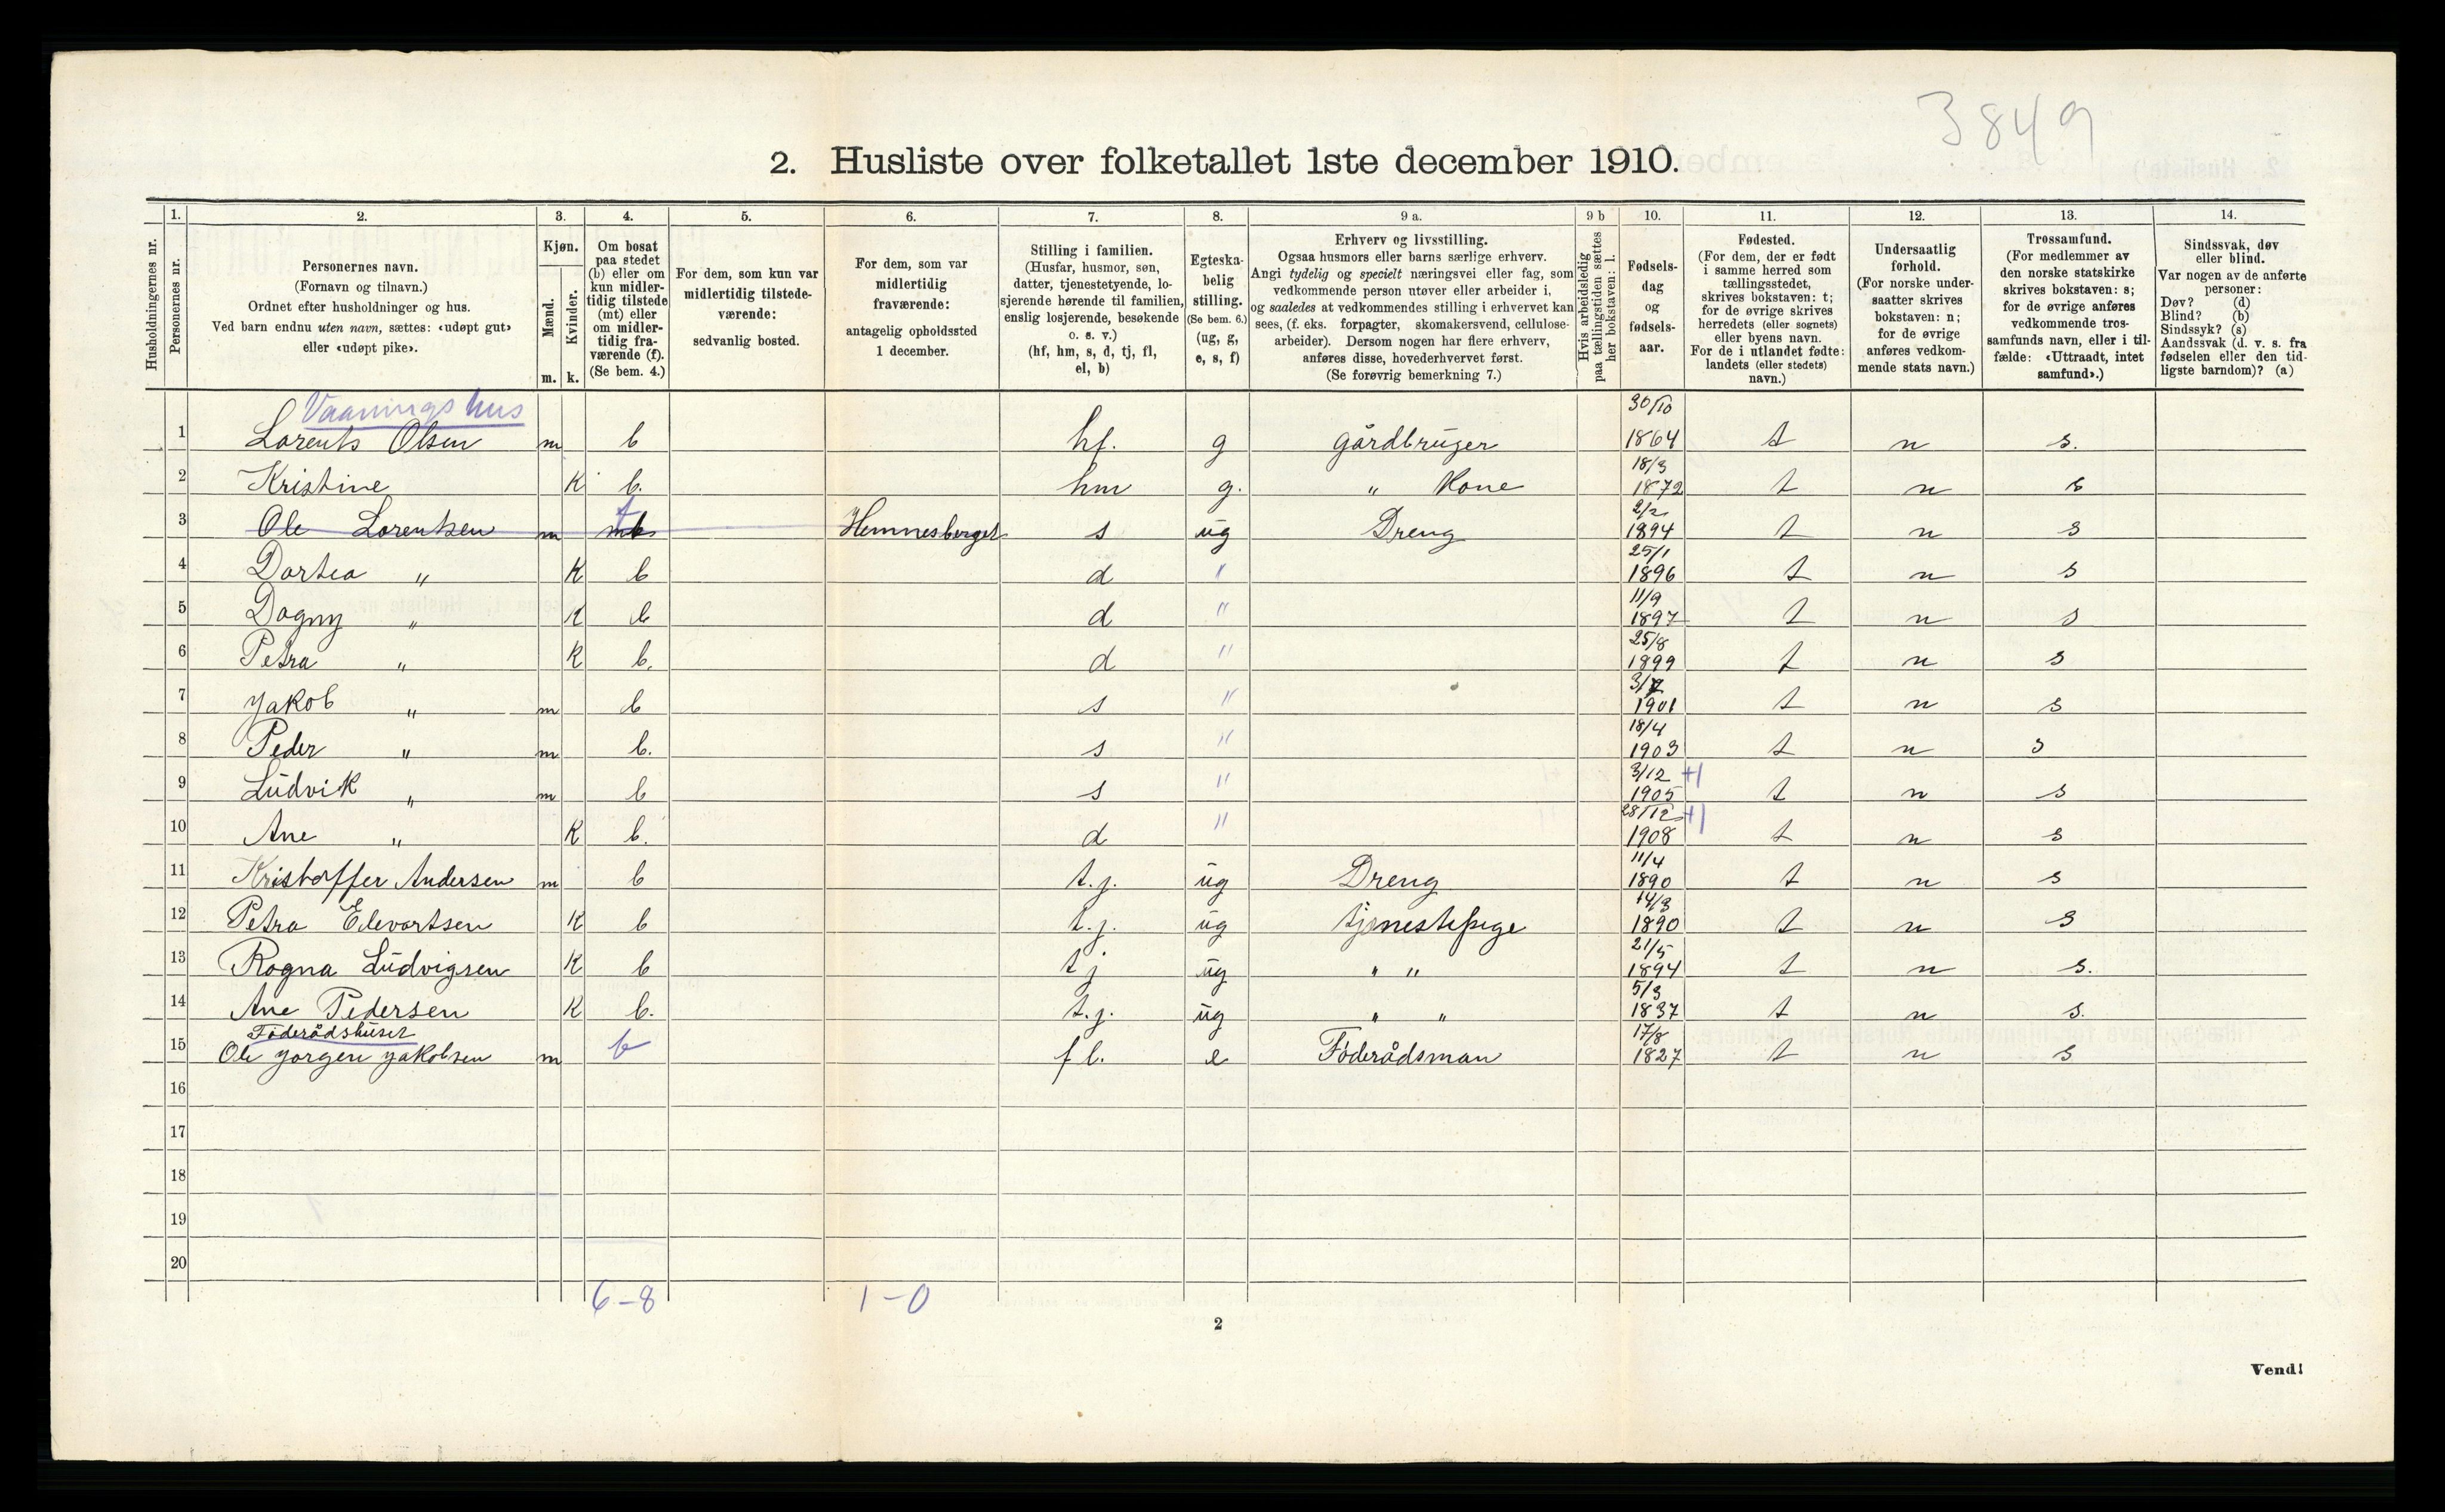 3849
2. Husliste over folketallet 1ste december 1910.
Husholdningernes nr.
1.
Personernes nr.
2.
Personernes navn.
(Fornavn og tilnavn.)
Ordnet efter husholdninger og hus.
Ved barn endnu uten navn, sættes: «udøpt gut»
eller «udøpt pike».
3.
Kjøn.
Mænd.
Kvinder.
m. k.
4.
Om bosat
paa stedet
(b) eller om
kun midler-
tidig tilstede
(mt) eller
om midler-
tidig fra-
værende (f).
(Se bem. 4.)
5.
For dem, som kun var
midlertidig tilstede-
værende:
sedvanlig bosted.
6.
For dem, som var
midlertidig
fraværende:
antagelig opholdssted
1 december.
7.
Stilling i familien.
(Husfar, husmor, søn,
datter, tjenestetyende, lo-
sjerende hørende til familien,
enslig losjerende, besøkende
o. s. v.)
(hf, hm, s, d, tj, fl,
el, b)
8.
Egteska-
belig
stilling.
(Se bem. 6.)
(ug, g,
e, s, f)
9 a.
Erhverv og livsstilling.
Ogsaa husmors eller barns særlige erhverv.
Angi tydelig og specielt næringsvei eller fag, som
vedkommende person utøver eller arbeider i,
og saaledes at vedkommendes stilling i erhvervet kan
sees, (f. eks. forpagter, skomakersvend, cellulose-
arbeider). Dersom nogen har flere erhverv,
anføres disse, hovederhvervet først.
(Se forøvrig bemerkning 7.)
9 b
Hvis arbeidsledig
paa tællingstiden sættes
her bokstaven: l.
10.
Fødsels-
dag
og
fødsels-
aar.
11.
Fødested.
(For dem, der er født
i samme herred som
tællingsstedet,
skrives bokstaven: t;
for de øvrige skrives
herredets (eller sognets)
eller byens navn.
For de i utlandet fødte:
landets (eller stedets)
navn.)
12.
Undersaatlig
forhold.
(For norske under-
saatter skrives
bokstaven: n;
for de øvrige
anføres vedkom-
mende stats navn.)
13.
Trossamfund.
(For medlemmer av
den norske statskirke
skrives bokstaven: s;
for de øvrige anføres
vedkommende tros-
samfunds navn, eller i til-
fælde: «Uttraadt, intet
samfund».)
14.
Sindssvak, døv
eller blind.
Var nogen av de anførte
personer:
Døv? (d)
Blind? (b)
Sindssyk? (s)
Aandssvak (d. v. s. fra
fødselen eller den tid-
ligste barndom)? (a)
Vaaningshus
1 Lorents Olsen m b hf. g gårdbruger 30/10 1864 t n s.
2 Kristine K b. hm g. " Kone 18/3 1872 t n s
3 Ole Lorentsen m f Hemnesberget s ug Dreng 2/2 1894 t n s
4 Dortea " K b d " 25/1 1896 t n s
5 Dagny " K b d " 11/9 1897 t n s
6 Petra " K b. d " 25/8 1899 t n s
7 Jakob " m b s " 1901 t n s
8 Peder " m b. s " 18/4 1903 t n s
9 Ludvik " m b s " 3/12 +1 1905 t n s
10 Ane " K b. d " 28/12 +1 1908 t n s
11 Kristoffer Andersen m b t.j. ug Dreng 11/4 1890 t n s
12 Petra Edevartsen K b t.j. ug tjenestepige 14/3 1890 t n s
13 Ragna Ludvigsen K b tj ug " " 21/5 1894 t n s.
14 Ane Pedersen K b. t.j. ug " " 5/3 1837 t n s.
Föderådshuset
15 Ole Jörgen Jakobsen m b fl. e Föderådsman 17/8 1827 t n s
16
17
18
19
20
6-8 1-0
2
Vend!